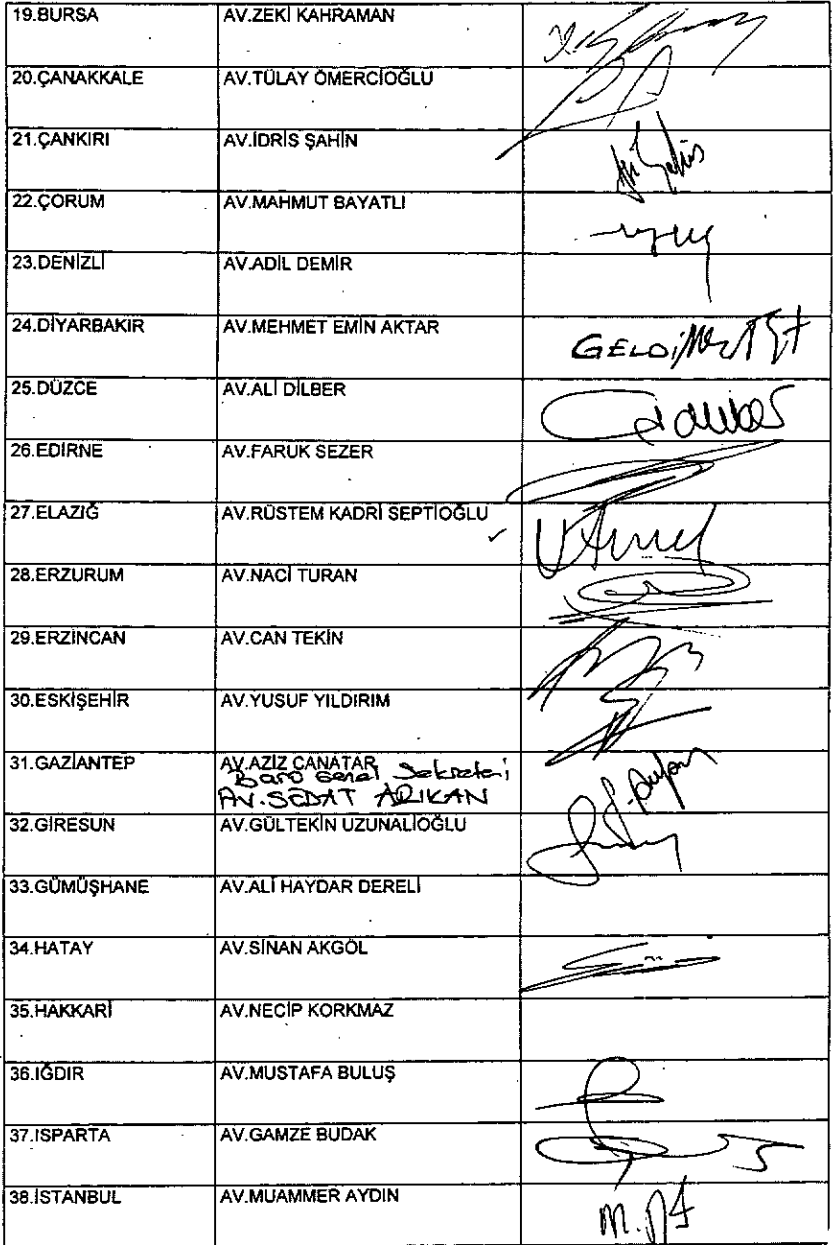 19.BURSA AV.ZEKİ KAHRAMAN
20.ÇANAKKALE AV.TÜLAY ÖMERCİOĞLU
21.ÇANKIRI AV.İDRİS ŞAHİN
22.ÇORUM AV.MAHMUT BAYATLI
23.DENİZLİ AV.ADİL DEMİR
24.DİYARBAKIR AV.MEHMET EMİN AKTAR GELDİ
25.DÜZCE AV.ALİ DİLBER
26.EDİRNE AV.FARUK SEZER
27.ELAZIĞ AV.RÜSTEM KADRİ SEPTİOĞLU
28.ERZURUM AV.NACİ TURAN
29.ERZİNCAN AV.CAN TEKİN
30.ESKİŞEHİR AV.YUSUF YILDIRIM
31.GAZİANTEP AV.AZİZ CANATAR
Baro Genel Sekreteri
AV.SEDAT ARIKAN
32.GİRESUN AV.GÜLTEKİN UZUNALİOĞLU
33.GÜMÜŞHANE AV.ALİ HAYDAR DERELİ
34.HATAY AV.SİNAN AKGÖL
35.HAKKARİ AV.NECİP KORKMAZ
36.IĞDIR AV.MUSTAFA BULUŞ
37.ISPARTA AV.GAMZE BUDAK
38.İSTANBUL AV.MUAMMER AYDIN